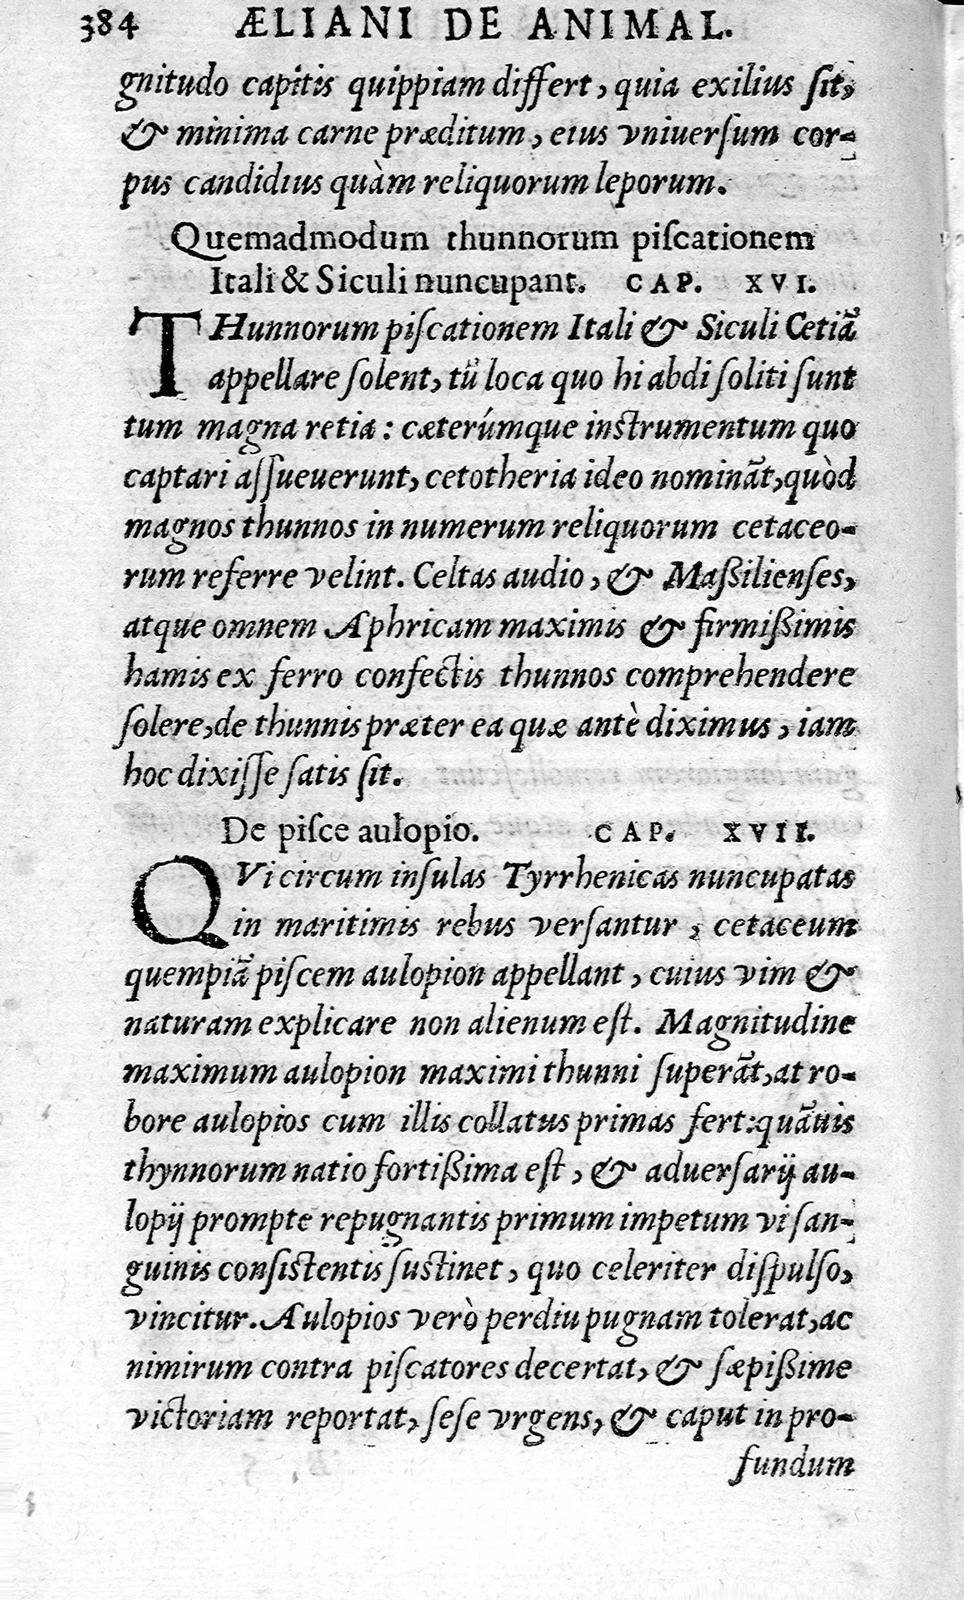 384 ÆLIANI DE ANIMAL.
gnitudo capitis quippiam differt, quia exilius ſit,
& minima carne præditum, eius vniuerſum cor-
pus candidius quàm reliquorum leporum.
Quemadmodum thunnorum piſcationem
Itali & Siculi nuncupant. CAP. XVI.
THunnorum piſcationem Itali & Siculi Cetiā
appellare ſolent, tū loca quo hi abdi ſoliti ſunt
tum magna retia: cæterúmque inſtrumentum quo
captari aſſueuerunt, cetotheria ideo nomināt, quòd
magnos thunnos in numerum reliquorum cetaceo-
rum referre velint. Celtas audio, & Maßilienſes,
atque omnem Aphricam maximis & firmißimis
hamis ex ferro confectis thunnos comprehendere
ſolere, de thunnis præter ea quæ antè diximus, iam
hoc dixiſſe ſatis ſit.
De piſce aulopio. CAP. XVII.
QVi circum inſulas Tyrrhenicas nuncupatas
in maritimis rebus verſantur, cetaceum
quempiā piſcem aulopion appellant, cuius vim &
naturam explicare non alienum eſt. Magnitudine
maximum aulopion maximi thunni ſuperāt, at ro-
bore aulopios cum illis collatus primas fert: quāuis
thynnorum natio fortißima eſt, & aduerſarij au-
lopij prompte repugnantis primum impetum vi ſan-
guinis conſiſtentis ſuſtinet, quo celeriter diſpulſo,
vincitur. Aulopios verò perdiu pugnam tolerat, ac
nimirum contra piſcatores decertat, & ſæpißime
victoriam reportat, ſeſe vrgens, & caput in pro-
fundum